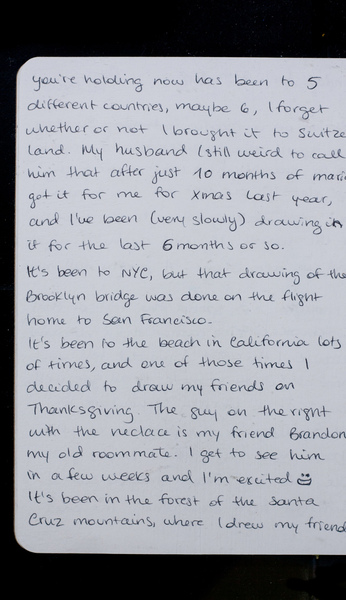 you're holding now has been to 5
different countries, maybe 6, I forget
whether or not I brought it to Switze
land. My husband (still weird to call
him that after just 10 months of mari
got it for me for xmas last year,
and I've been (very slowly) drawing in
it for the last 6 months or so.
It's been to NYC, but that drawing of the
Brooklyn bridge was done on the flight
home to San Francisco.
It's been to the beach in California lots
of times, and one of those times I
decided to draw my friends on
Thanksgiving. The guy on the right
with the neclace is my friend Brandon
my old roommate. I get to see him
in a few weeks and I'm excited
It's been in the forest of the Santa
Cruz mountains, where I drew my friend